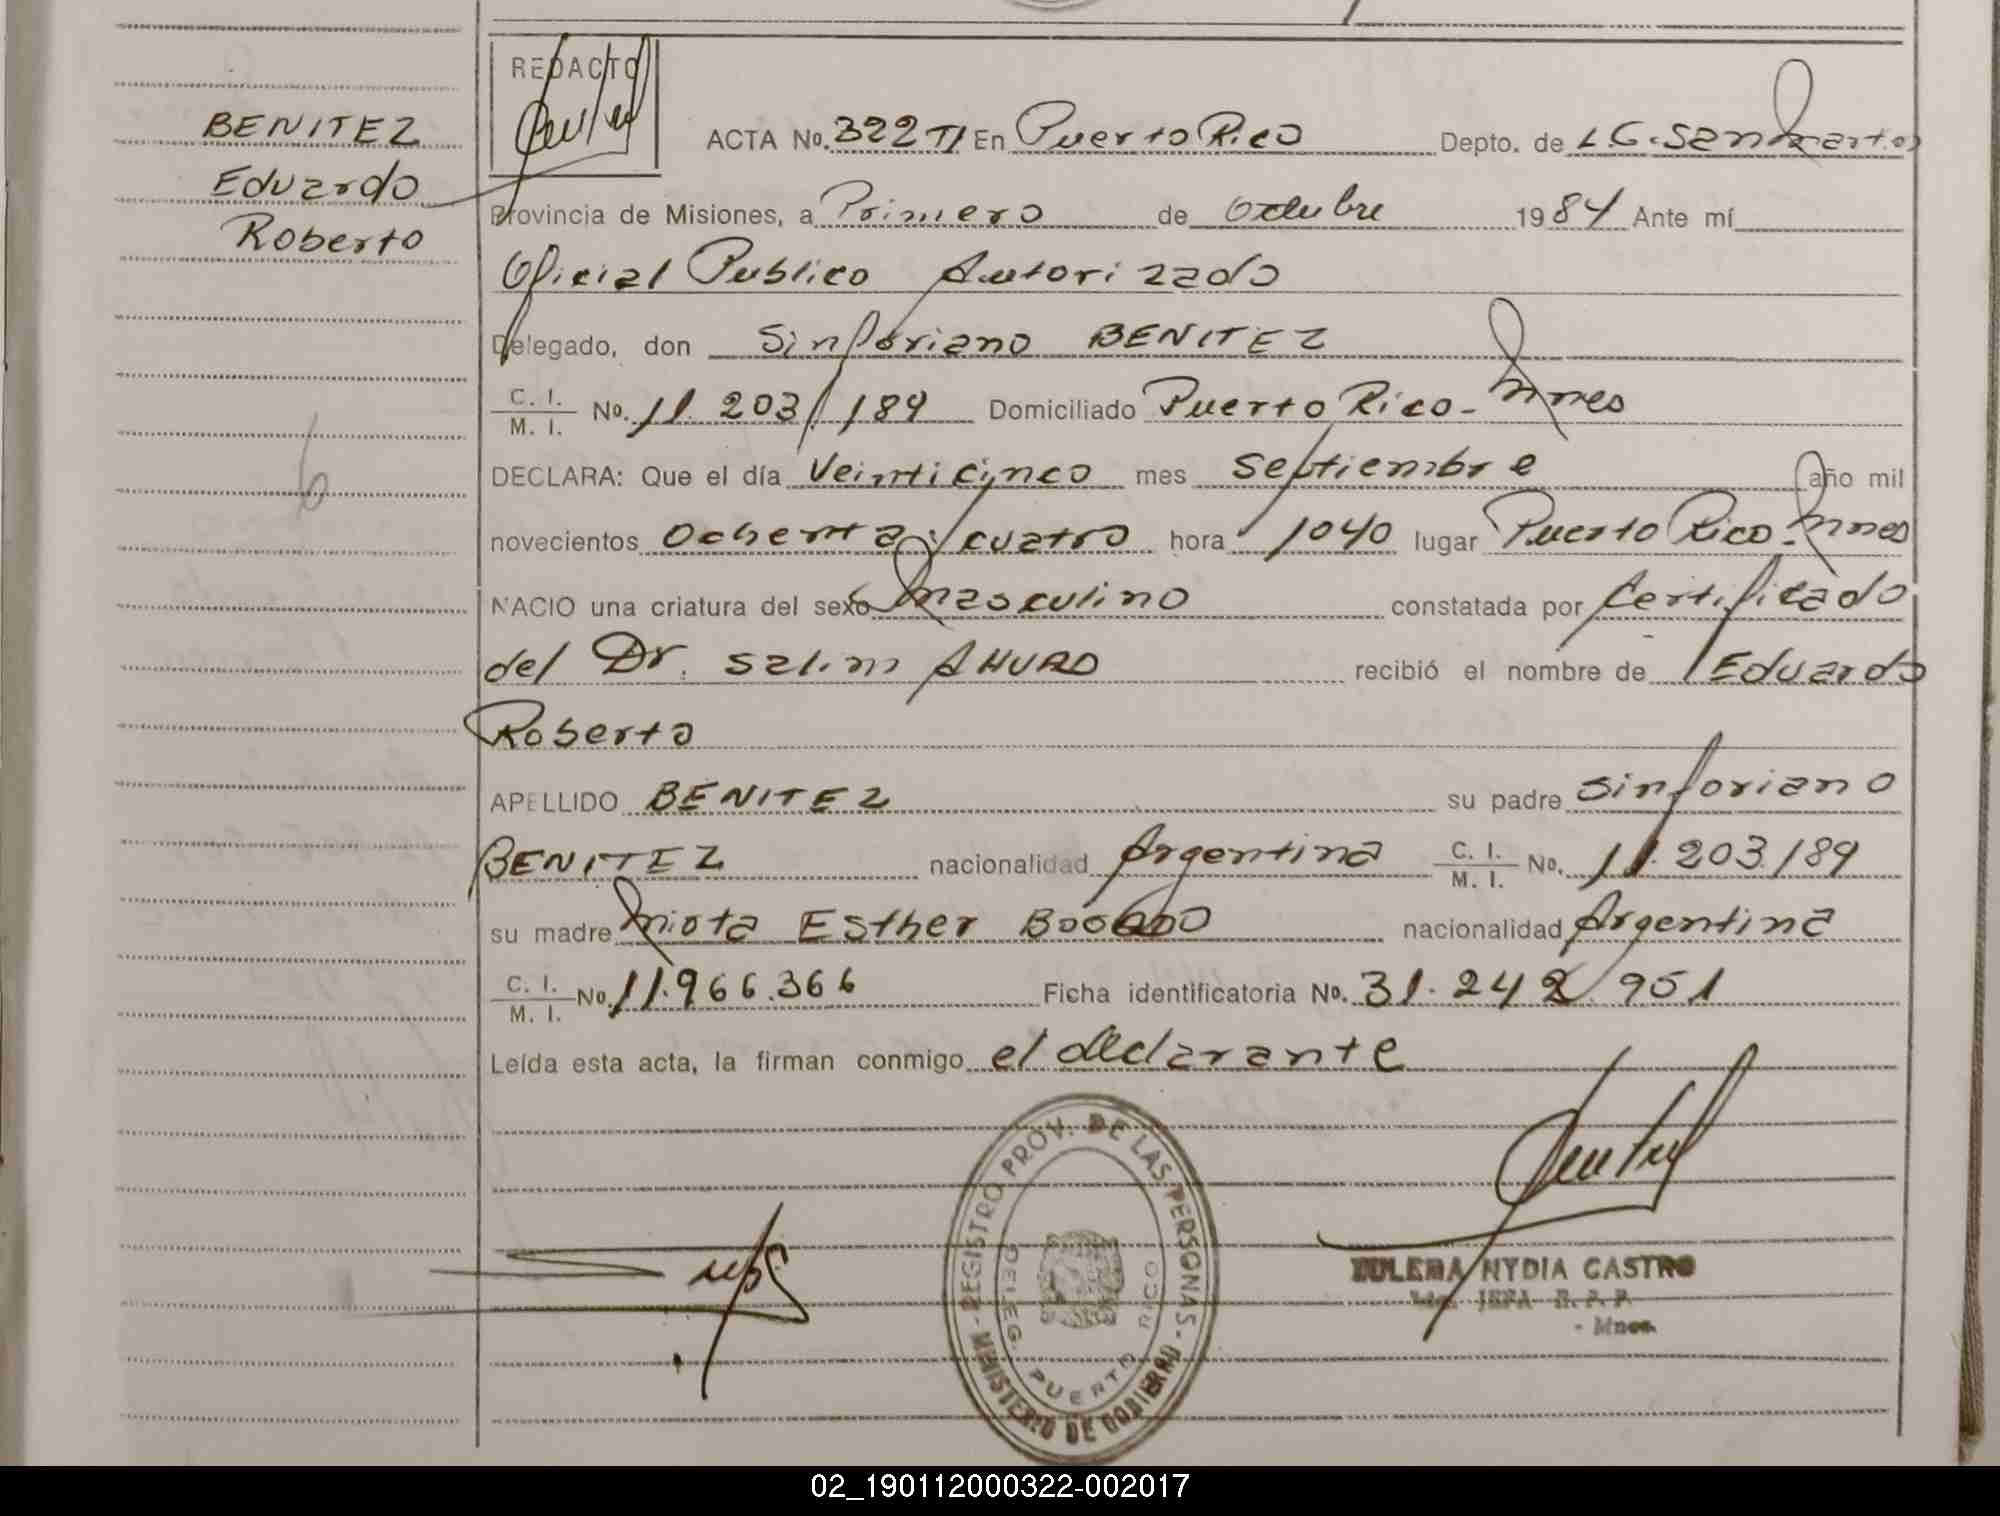 BENITEZ
Eduardo
Roberto
REDACTO
ACTA No. 322 TI En Puerto Rico Depto. de L.G. San Martin
Provincia de Misiones, a Primero de Octubre 1984 Ante mí
Oficial Publico Autorizado
Delegado, don Sinforiano BENITEZ
C. I. M. I. No. 11.203.189 Domiciliado Puerto Rico - Mnes
DECLARA: Que el día Veinticinco mes Septiembre año mil
novecientos Ochenta y cuatro hora 1040 lugar Puerto Rico - Mnes
NACIO una criatura del sexo Masculino constatada por Certificado
del Dr. Salim AHUAD recibió el nombre de Eduardo
Roberto
APELLIDO BENITEZ su padre Sinforiano
BENITEZ nacionalidad Argentina C. I. M. I. No. 11.203.189
su madre Mirta Esther BOGADO nacionalidad Argentina
C. I. M. I. No. 11.966.366 Ficha identificatoria No. 31.242.951
Leída esta acta, la firman conmigo el declarante
REGISTRO PROV. DE LAS PERSONAS - MINISTERIO DE GOBIERNO
DELEG. PUERTO RICO
ZULEMA NYDIA CASTRO
JEFA R. P. P.
- Mnes.
02_190112000322-002017